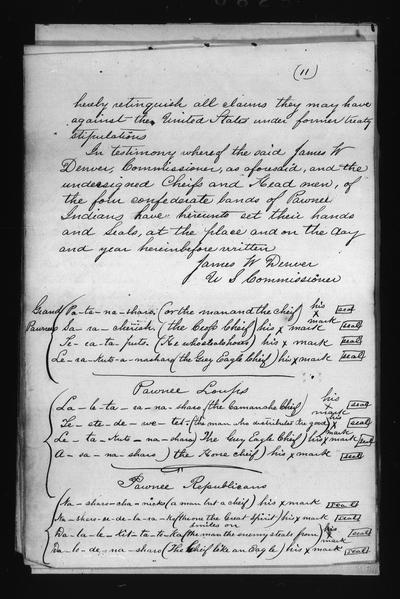 (11)
hereby relinquish all claims they may have
against the United States under former treaty
stipulations
In testimony whereof the said James W
Denver, Commissioner, as aforesaid, and the
undersigned Chiefs and Head men, of
the four confederate bands of Pawnee
Indians have hereunto set their hands
and Seals, at the place and on the day
and year hereinbefore written
James W Denver
U S Commissioner
Grand Pa-ta-na-sharo, (or the man and the chief) his x mark seal
Pawnees Sa-ra-cherish. (the Cross Chief) his x mark seal
Te-ra-ta-puts. (he who steals horses) his x mark seal
Le-ra-kuts-a-nasharo (the Grey Eagle Chief) his x mark seal
Pawnee Loups
La-le-ta-ra-na-sharo (the Camanche Chief) his x mark seal
Te-ste-de-we-tel- (the man who distributes the goods) his x mark seal
Le-ta-kuts-na-sharo The Grey Eagle Chief) his x mark seal
A-sa-na-sharo) the Horse chief) his x mark seal
Pawnee Republicans
Na-sharo-cha-nicks (a man but a chief) his x mark seal
Na-sharo-se-de-la-ra-ko (the one the Great Spirit smiles on) his x mark seal
Da-la-le-kit-ta-to-ka (the man the enemy steals from) his x mark seal
Da-lo-de-na-sharo (The Chief like an Eagle) his x mark seal